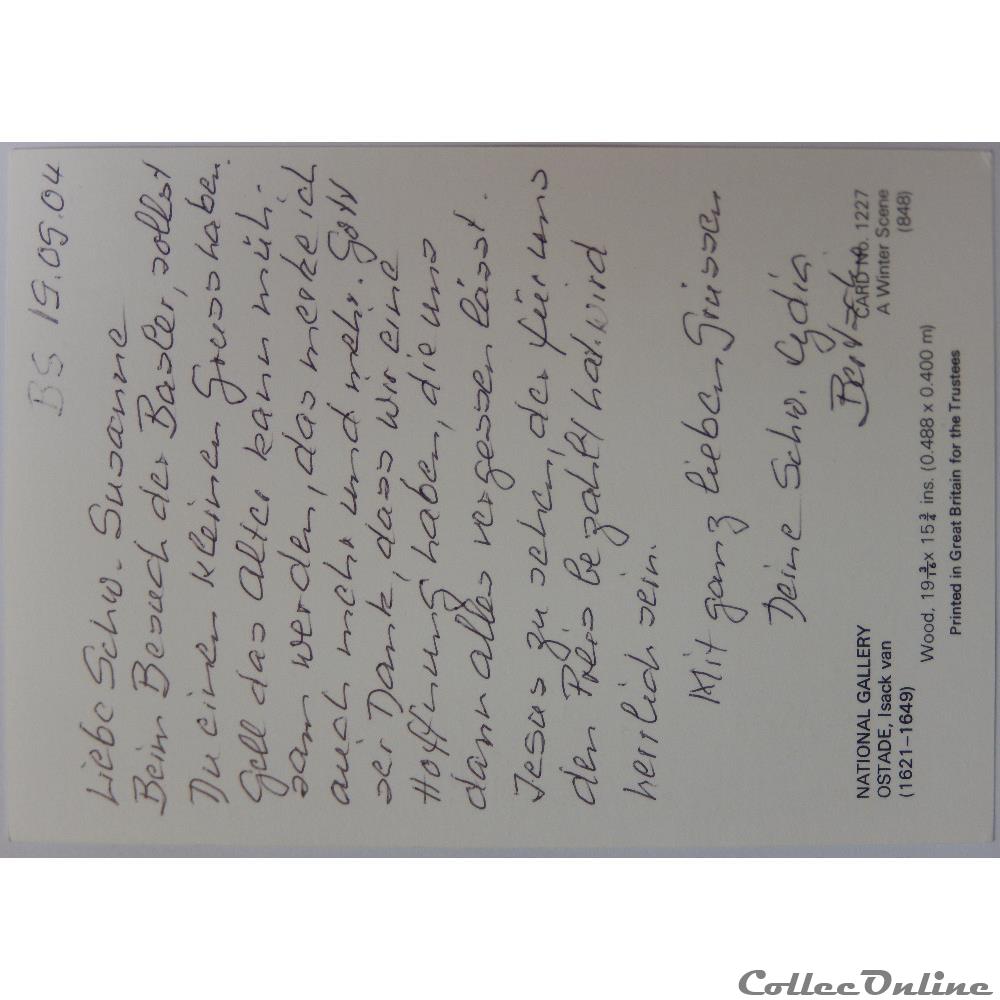 BS 19.09.04
Liebe Schw. Susanne
Beim Besuch der Basler, sollst
Du einen kleinen Gruss haben.
Gell das Alter kann müh-
sam werden, das merke ich
auch mehr und mehr. Gott
sei Dank, dass wir eine
Hoffnung haben, die uns
dann alles vergessen lässt.
Jesus zu sehen, der für uns
den Preis bezahlt hat. wird
herrlich sein.
Mit ganz lieben Grüssen
Deine Schw. Lydia
NATIONAL GALLERY
OSTADE, Isack van
(1621–1649)
CARD No. 1227
A Winter Scene
(848)
Wood, 19 3/16 x 15 3/4 ins. (0.488 x 0.400 m)
Printed in Great Britain for the Trustees
CollecOnline